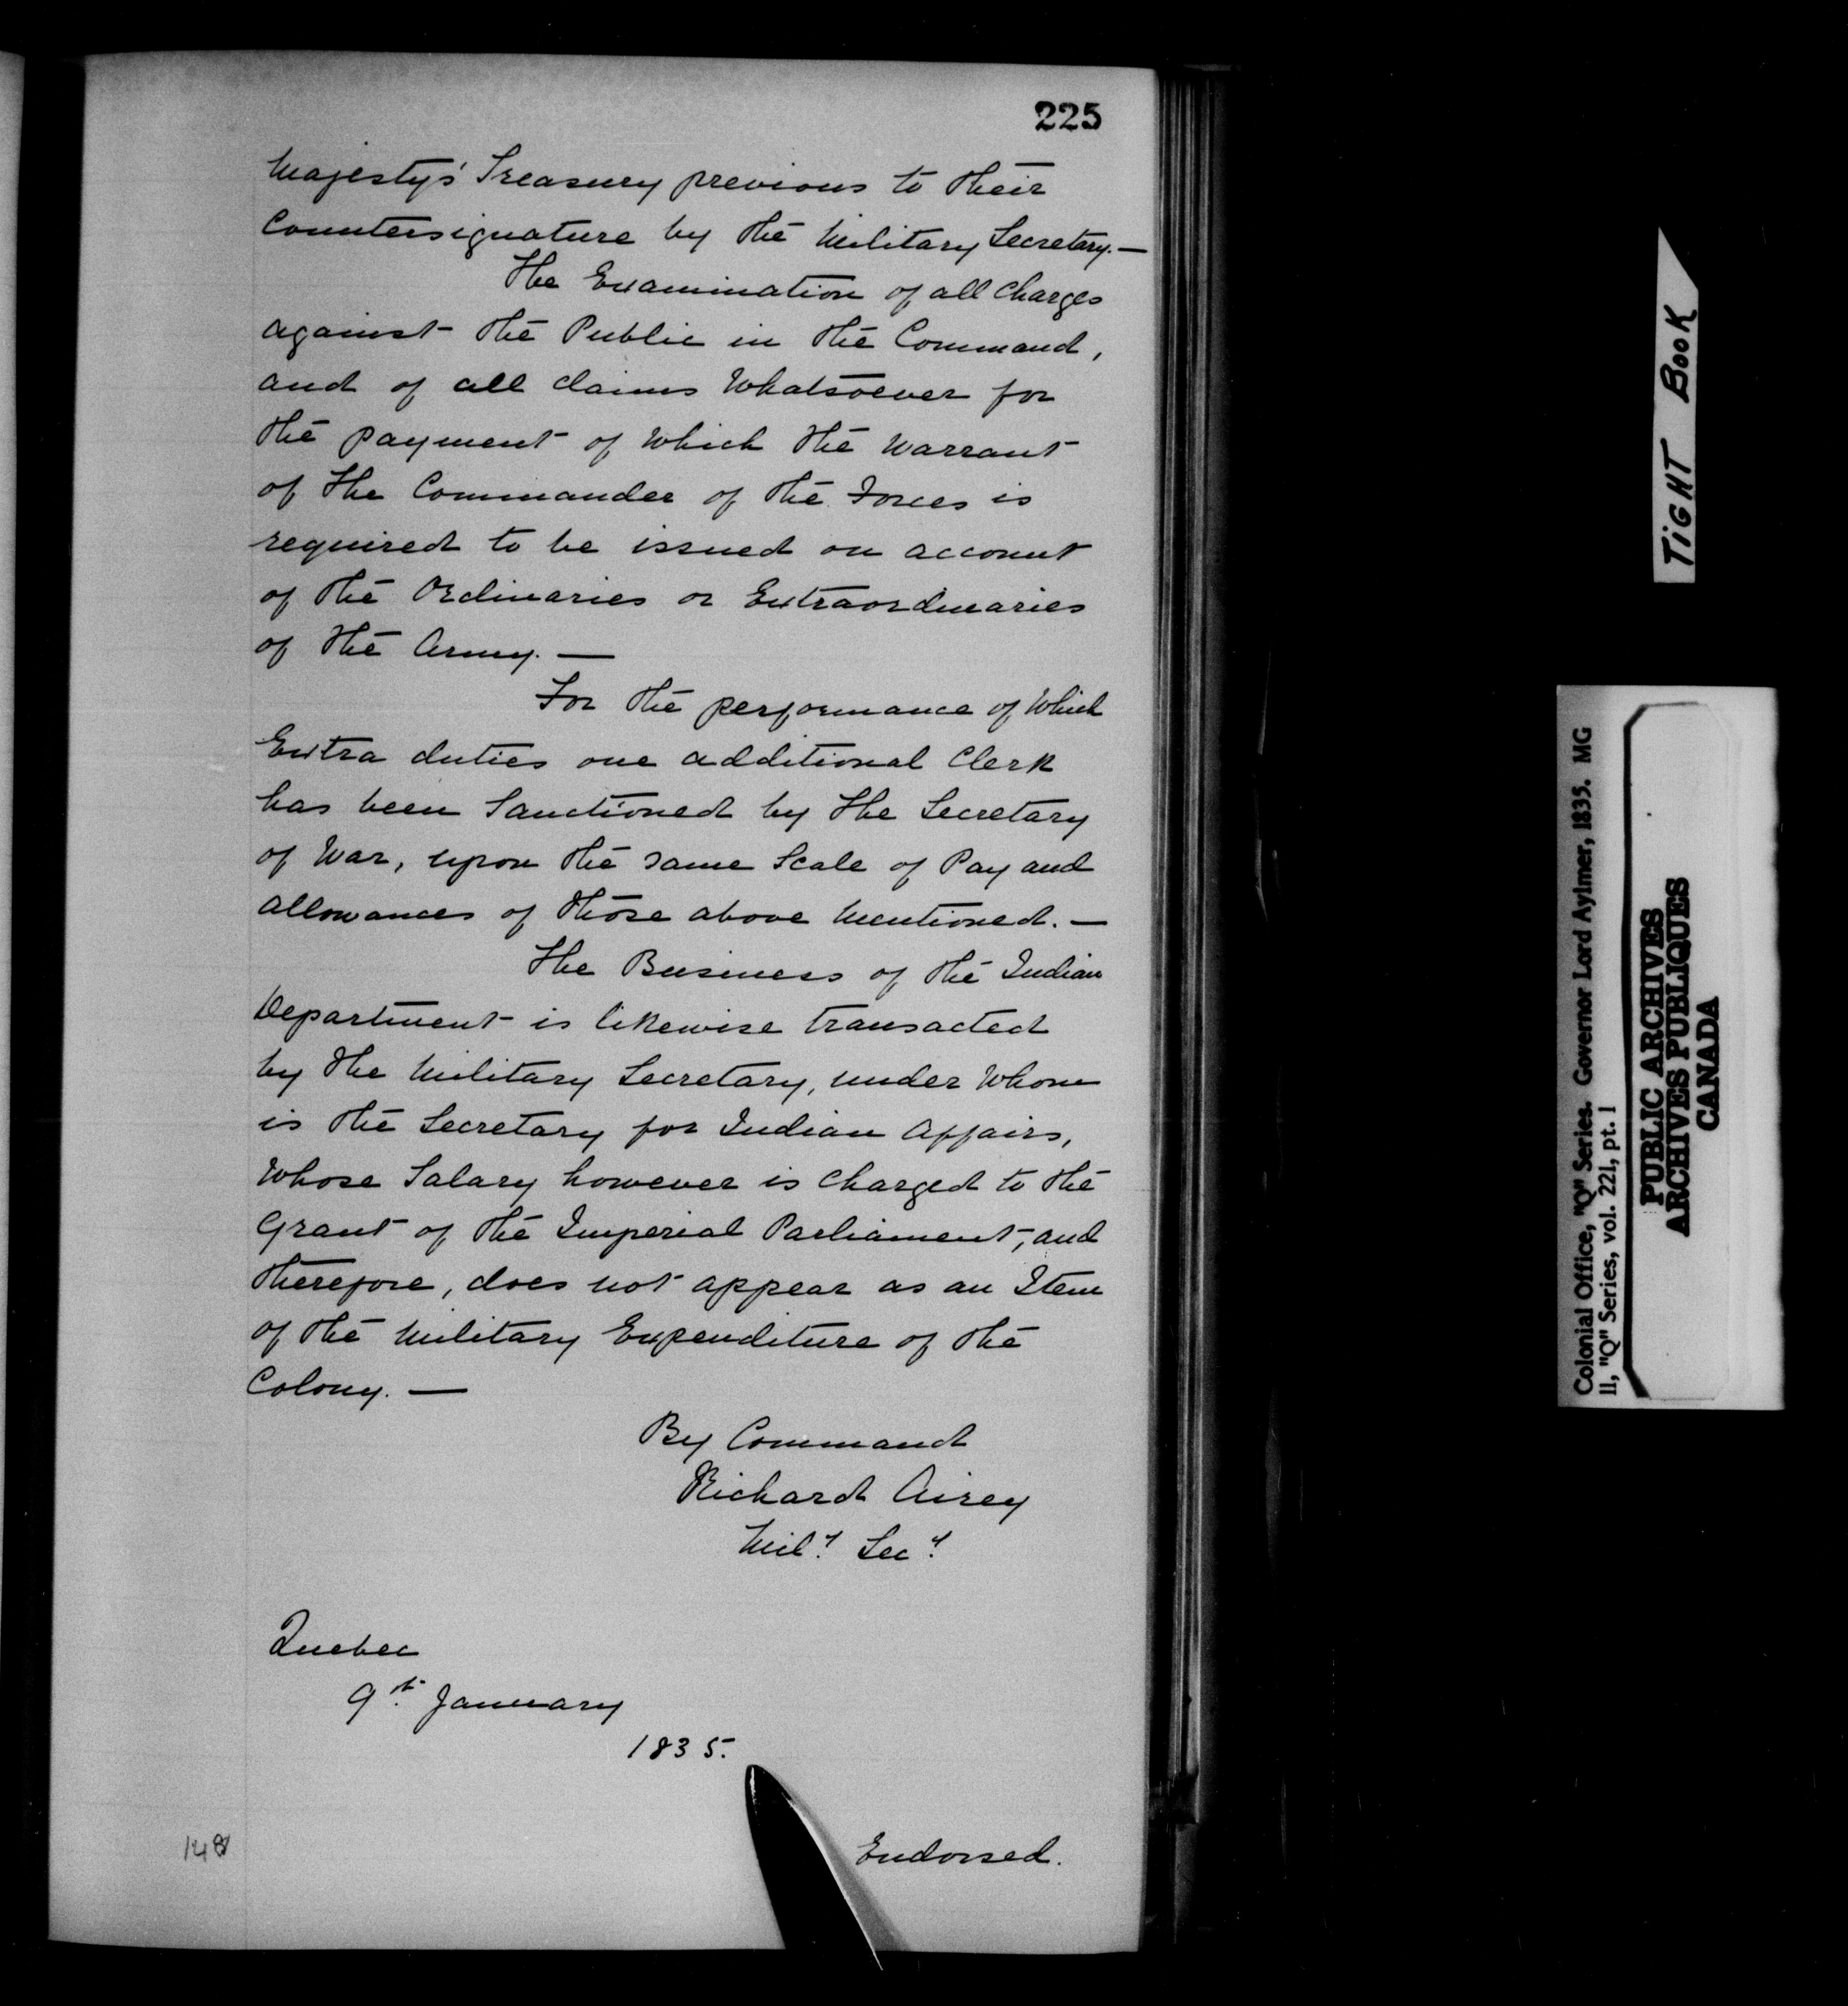 225
Majesty's Treasury previous to their
Countersignature by the Military Secretary. —
The Examination of all Charges
against the Public in the Command,
and of all claims Whatsoever for
the payment of Which the Warrant
of the Commander of the Forces is
required to be issued on account
of the Ordinaries or Extraordinaries
of the Army. —
For the performance of Which
Extra duties one additional Clerk
has been Sanctioned by the Secretary
of War, upon the same Scale of Pay and
allowances of those above Mentioned. —
The Business of the Indian
Department is likewise transacted
by the Military Secretary, under Whom
is the Secretary for Indian Affairs,
Whose Salary however is Charged to the
Grant of the Imperial Parliament, and
therefore, does not appear as an Item
of the Military Expenditure of the
Colony. —
By Command
Richard Airey
Mil.y Sec.y
Quebec
9th January
1835.
148
Endorsed.
TIGHT BOOK
Colonial Office, "Q" Series. Governor Lord Aylmer, 1835. MG
11, "Q" Series, vol. 221, pt. 1
PUBLIC ARCHIVES
ARCHIVES PUBLIQUES
CANADA